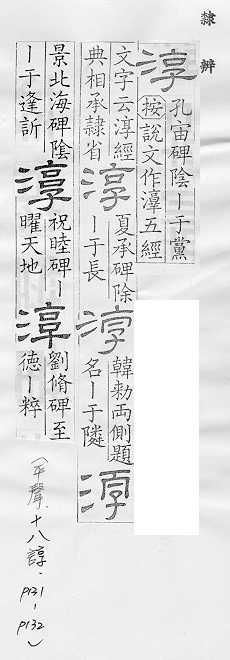 隸辨
淳
孔宙碑陰ー于黨
按說文作五經
文字云淳經
典相承隸省
淳
夏承碑除
ー于長
淳
韓勑両側題
名ー于隣
淳
景北海碑陰
ー于逢訢
淳
祝睦碑ー
曜天地
淳
劉脩碑至
德ー粹
(平聲.十八諄.P131-P132)